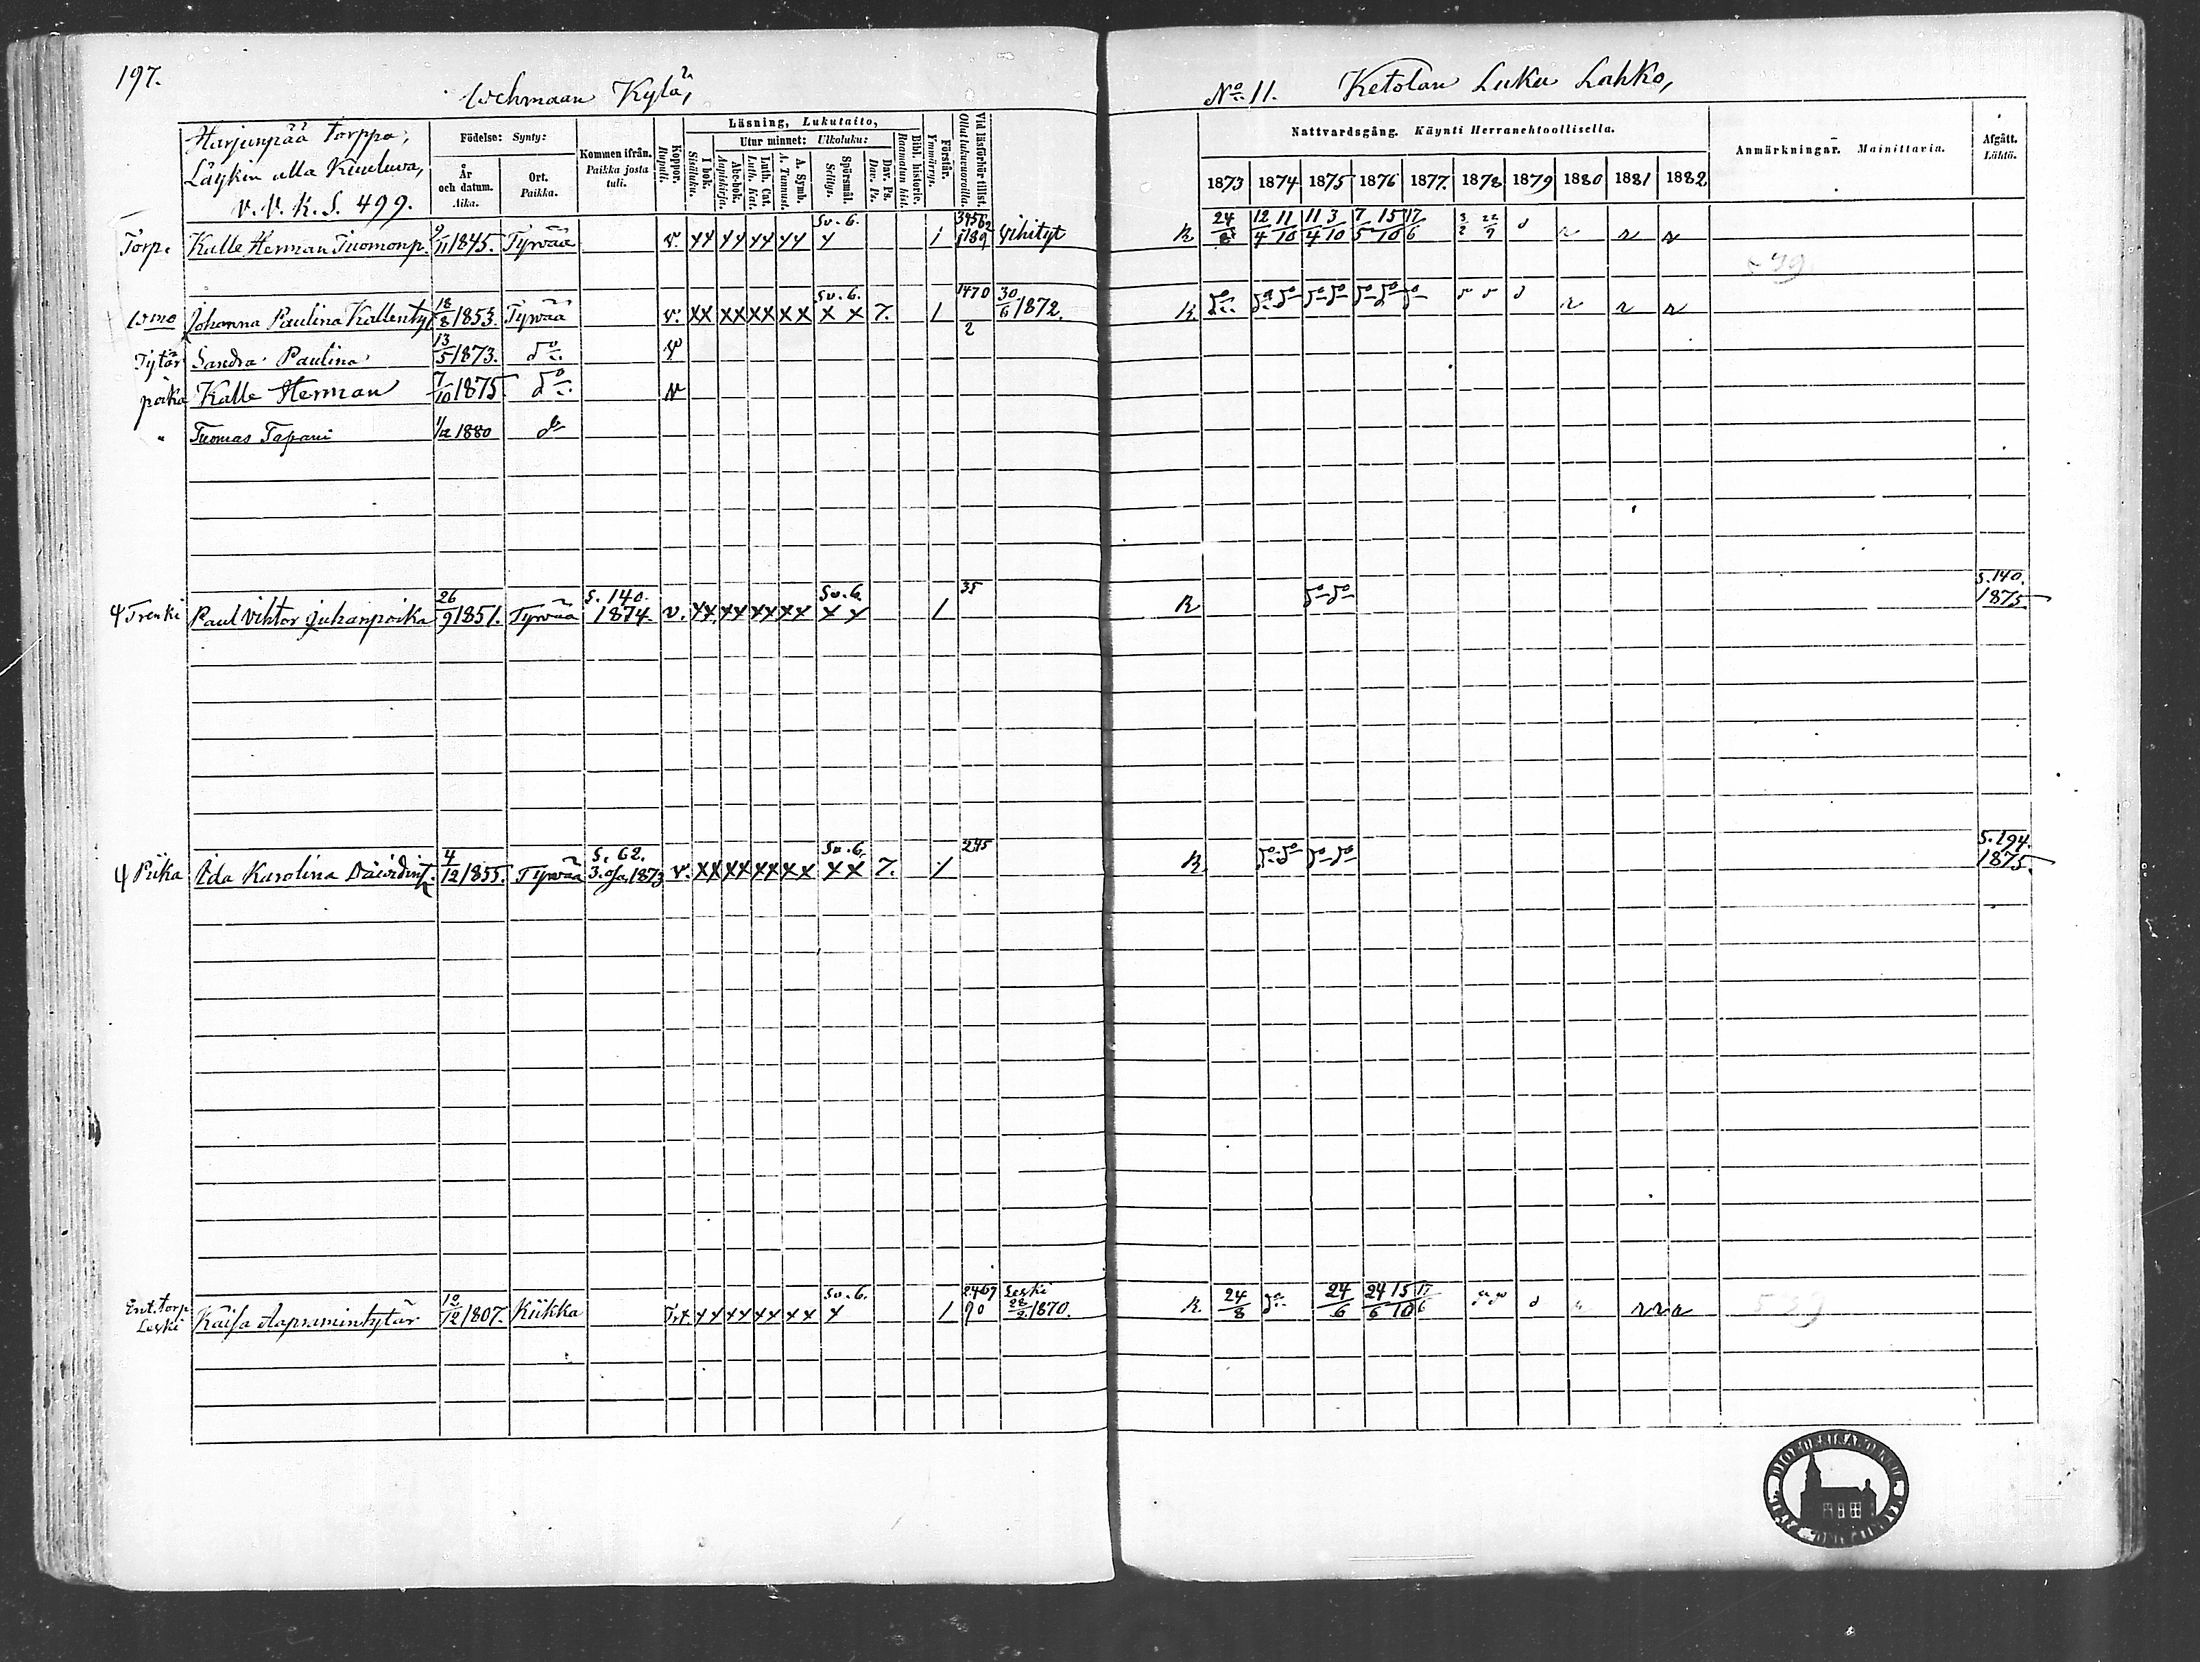 197.
Wehmaan Kylä,
No 11. Ketolan Luku Lahko,
Harjunpää torppa,
Läykin alla Kuuluva,
V. V. K. S. 499.
Födelse: Synty:
År och datum. Aika.
Ort. Paikka.
Kommen ifrån. Paikka josta tuli.
Koppor. Rupuli.
Läsning, Lukutaito,
I bok. Sisäluku.
Utur minnet: Ulkoluku:
Abc-bok. Aapiskirja.
Luth. Cat. Luth. Kat.
A. Symb. A. Tunnust.
Spörsmål. Selitys.
Dav. Ps. Dav. Ps.
Bibl. historie. Raamatun hist.
Förstår. Ymmärrys.
Vid läsförhör tillst. Ollut lukuvuoroilla.
Nattvardsgång. Käynti Herranehtoollisella.
1873 1874 1875 1876 1877. 1878 1879 1880 1881 1882
Anmärkningar. Mainittavia.
Afgått. Lähtö.
Torp. Kalle Herman Tuomonp. 9/11 1845. Tyrvää v. Sv. 6. 1 vihityt R 24/8 12/4 11/10 11/4 3/10 7/5 15/10 17/6
Wmo Johanna Paulina Kallentyt 18/8 1853. Tyrvää v. xx xx xx xx Sv. 6. x x 7. 1 1470 2 30/6 1872. R
Tytär Sandra Paulina 13/5 1873. do v
poika Kalle Herman 7/10 1875 do v
" Tuomas Tapani 1/12 1880 do
Trenki Paul Vihtor Juhanpoika 26/9 1851. Tyrvää S. 140. 1874. v. xx xx xx xx Sv. 6. x x 1 35 R do do S. 140. 1875.
Piika Ida Karolina Däividint. 4/12 1855. Tyrvää S. 62. 3. osa. 1873 v. xx xx xx xx Sv. 6. x x 7. 1 245 R do do do do S. 194. 1875.
Ent. torp. Leski Kaisa Aapramintytär 12/12 1807. Kiikka Sv. 6. 1 Leski 1870. R 24/8 do 24/6 24/6 15/10 17/6